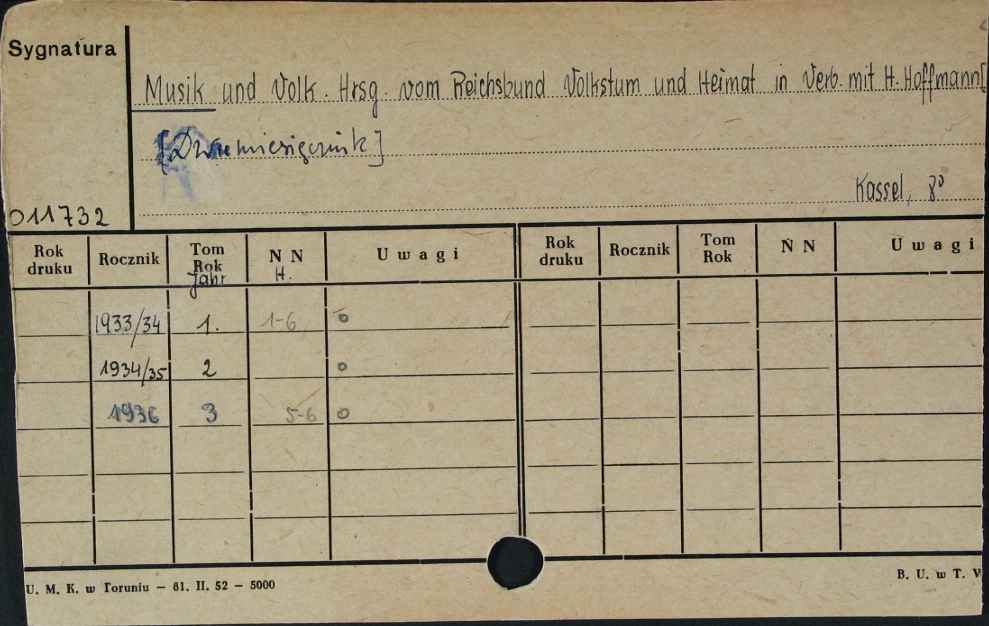 Sygnatura
Musik und Volk. Hrsg. vom Reichsbund Volkstum und Heimat in Verb. mit H. Hoffmann[
[Dwumiesięcznik]
Kassel, 8°
011732
Rok druku Rocznik Tom Rok Jahr N N H. Uwagi Rok druku Rocznik Tom Rok N N Uwagi
1933/34 1. 1-6 o
1934/35 2 o
1936 3 5-6 o
U. M. K. w Toruniu — 61. II. 52 — 5000
B. U. w T. V